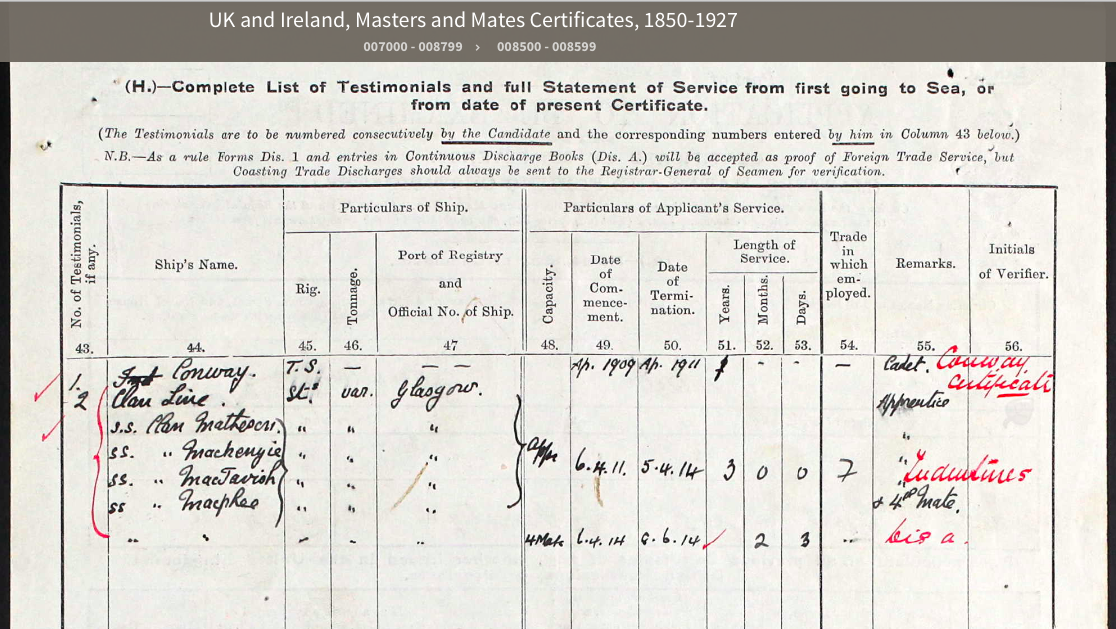 UK and Ireland, Masters and Mates Certificates, 1850-1927
007000 - 008799 › 008500 - 008599
(H.)—Complete List of Testimonials and full Statement of Service from first going to Sea, or
from date of present Certificate.
(The Testimonials are to be numbered consecutively by the Candidate and the corresponding numbers entered by him in Column 43 below.)
N.B.—As a rule Forms Dis. 1 and entries in Continuous Discharge Books (Dis. A.) will be accepted as proof of Foreign Trade Service, but
Coasting Trade Discharges should always be sent to the Registrar-General of Seamen for verification.
No. of Testimonials, if any.
Ship's Name.
Particulars of Ship.
Rig.
Tonnage.
Port of Registry
and
Official No. of Ship.
Particulars of Applicant's Service.
Capacity.
Date
of
Com-
mence-
ment.
Date
of
Termi-
nation.
Length of
Service.
Years.
Months.
Days.
Trade
in
which
em-
ployed.
Remarks.
Initials
of Verifier.
43. 44. 45. 46. 47 48. 49. 50. 51. 52. 53. 54. 55. 56.
1. Conway. T.S. — — — Ap. 1909 Ap. 1911 - - — Cadet. Conway
Certificate
2 Clan Line. St. var. Glasgow. Apprentice
S.S. Clan Matheson. " " " "
SS. " Mackenzie " " " "
SS. " MacTavish " " " Appr 6.4.11. 5.4.14 3 0 0 7 " Indentures
SS " Macphee " " " & 4th Mate.
" " " - " 4 Mate 6.4.14 8.6.14 2 3 " Dis a.